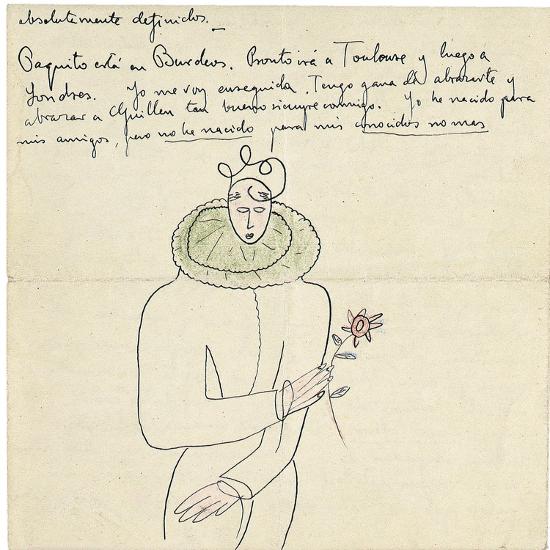 absolutamente definidos._
Paquito está en Burdeos. Pronto irá a Toulouse y luego a
Londres. Yo me voy enseguida. Tengo gana de abrazarte y
abrazar a Guillén tan bueno siempre conmigo. Yo he nacido para
mis amigos, pero no he nacido para mis conocidos no mas